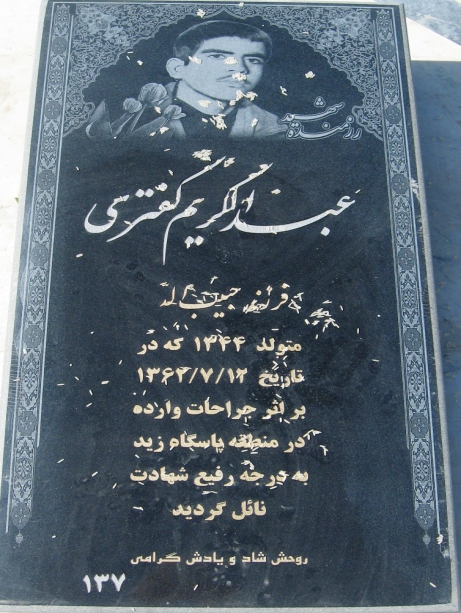 شهید
رزمنده
عبدالکریم کفترسی
فرزند حبیب اله
متولد ۱۳۴۴ که در
تاریخ ۱۳۶۲/۷/۱۲
بر اثر جراحات وارده
در منطقه پاسگاه زید
به درجه رفیع شهادت
نائل گردید
روحش شاد و یادش گرامی
۱۳۷